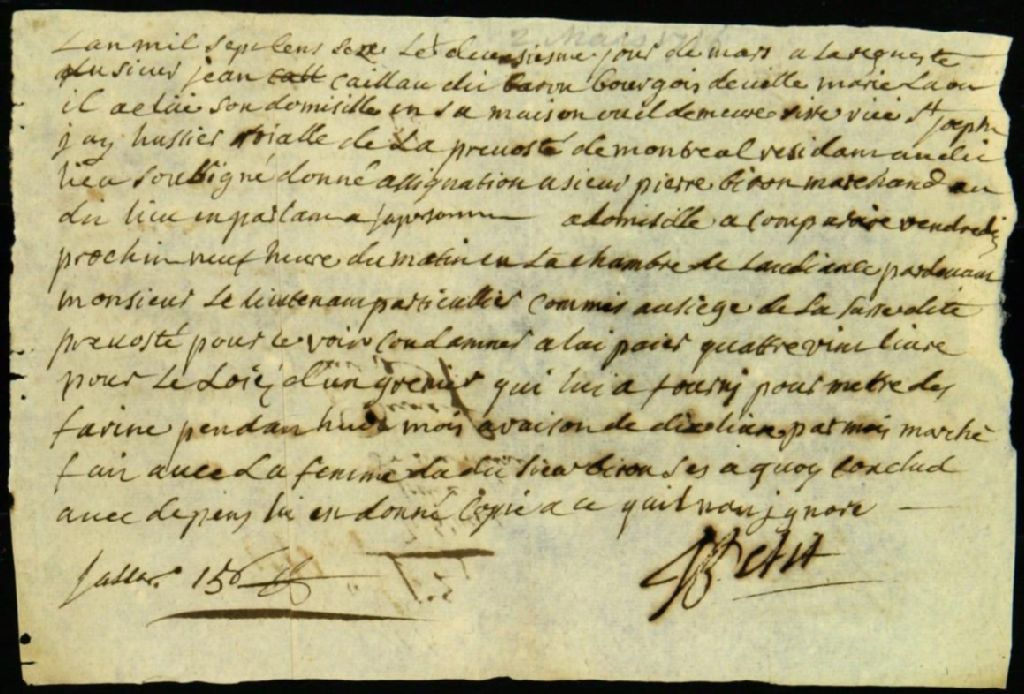 2 Mars 1716
Lan mil sept cens seze Le deuxsiesme jour de mars a la requeste
du sieur jean catt caillau dit baron bourgois de ville marie La ou
il a elue son domisille en sa maison ou il demeure rue St joseph
jay hussier roialle de La prevosté de montreal residam audit
lieu soubsigné donné assignation a sieur pierre biron marchand au
dit lieu en parlam a sa personne a domisille a comparoire vendredis
prochin neuf heure du matin en La chambre de Laudiance pardevam
monsieur Le lieutenam particullier commis au siege de La susdite
prevosté pour ce voir condamner a lui paier quatre vint livre
pour Le Loiej d'un grenier qui lui a fournj pour mettre des
farine pendan huit mois a raison de dix livre par mois marché
fait avec La femme du dit sieur biron a quoy conclud
avec depens lui en donné Copie a ce quil nan jgnore
156
Petit